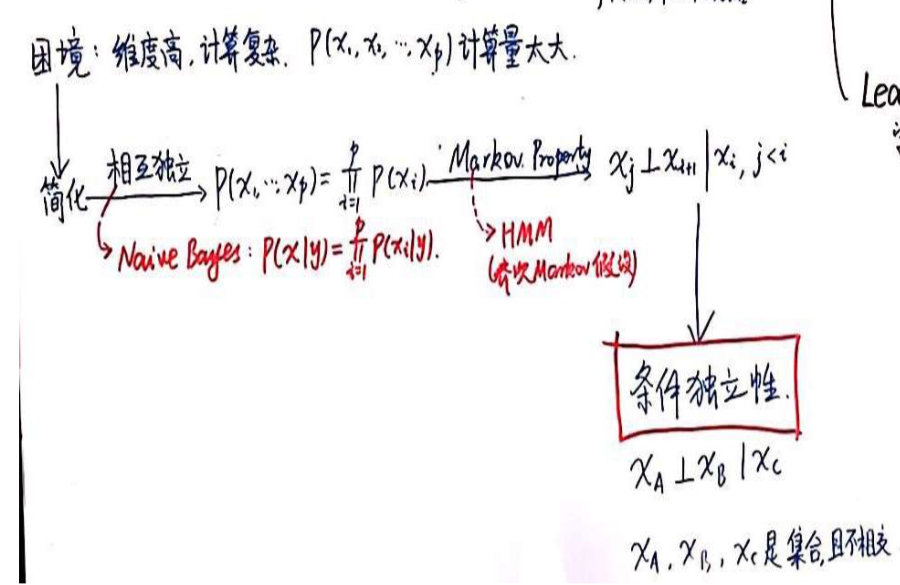 困境: 维度高, 计算复杂. P(x₁, x₂, ⋯, xₚ) 计算量太大.
Lea
简化 相互独立 P(x₁, ⋯, xₚ) = ∏ᵢ₌₁ᵖ P(xᵢ) Markov Property xⱼ ⊥ xᵢ₊₁ | xᵢ, j < i
Naive Bayes: P(x|y) = ∏ᵢ₌₁ᵖ P(xᵢ|y). HMM
(齐次Markov假设)
条件独立性.
x_A ⊥ x_B | x_C
x_A, x_B, x_C 是集合, 且不相交